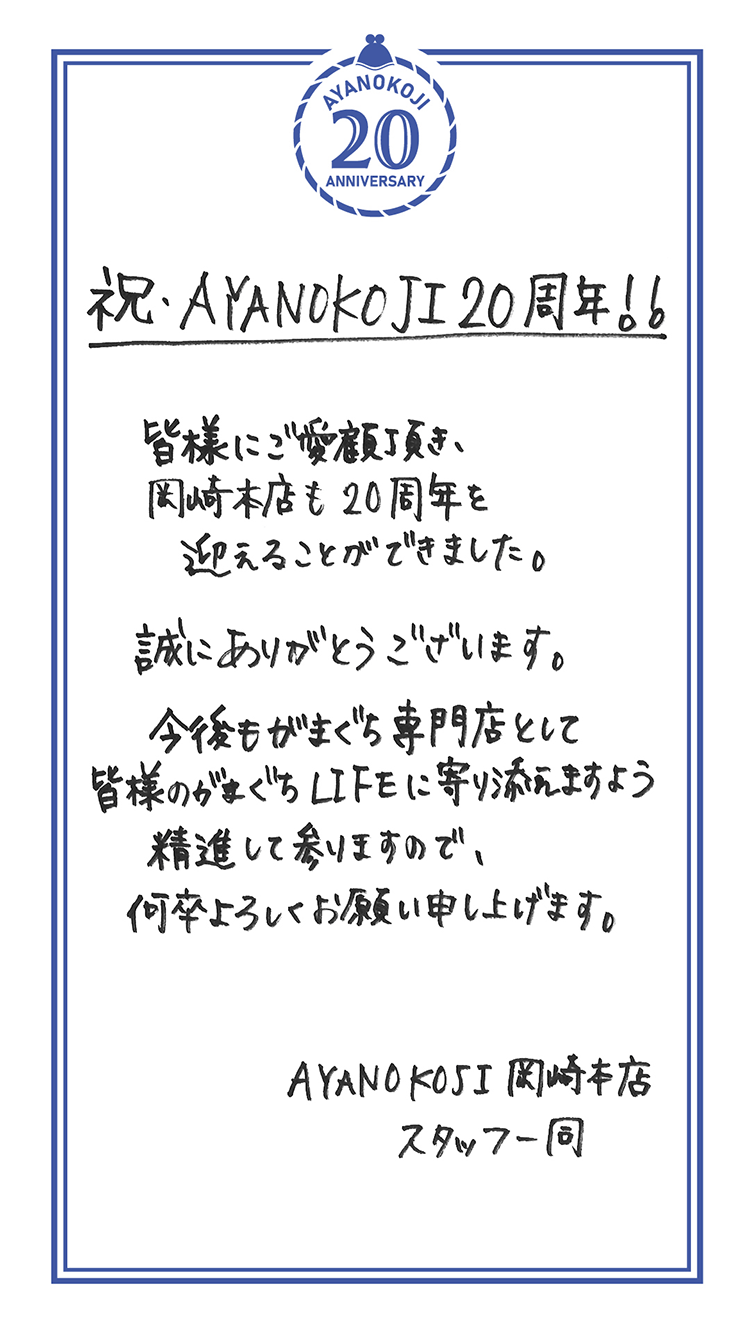 AYANOKOJI
20
ANNIVERSARY
祝・AYANOKOJI 20周年!!
皆様にご愛顧頂き、
岡崎本店も20周年を
迎えることができました。
誠にありがとうございます。
今後もがまぐち専門店として
皆様のがまぐちLIFEに寄り添えますよう
精進して参りますので、
何卒よろしくお願い申し上げます。
AYANOKOJI 岡崎本店
スタッフ一同